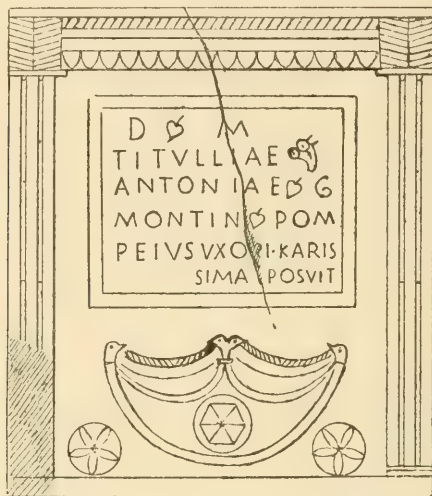 D ❧ M
TITVLLIAE
ANTONIAE ❧ G
MONTIN ❧ POM
PEIVS VXORI · KARIS
SIMA POSVIT